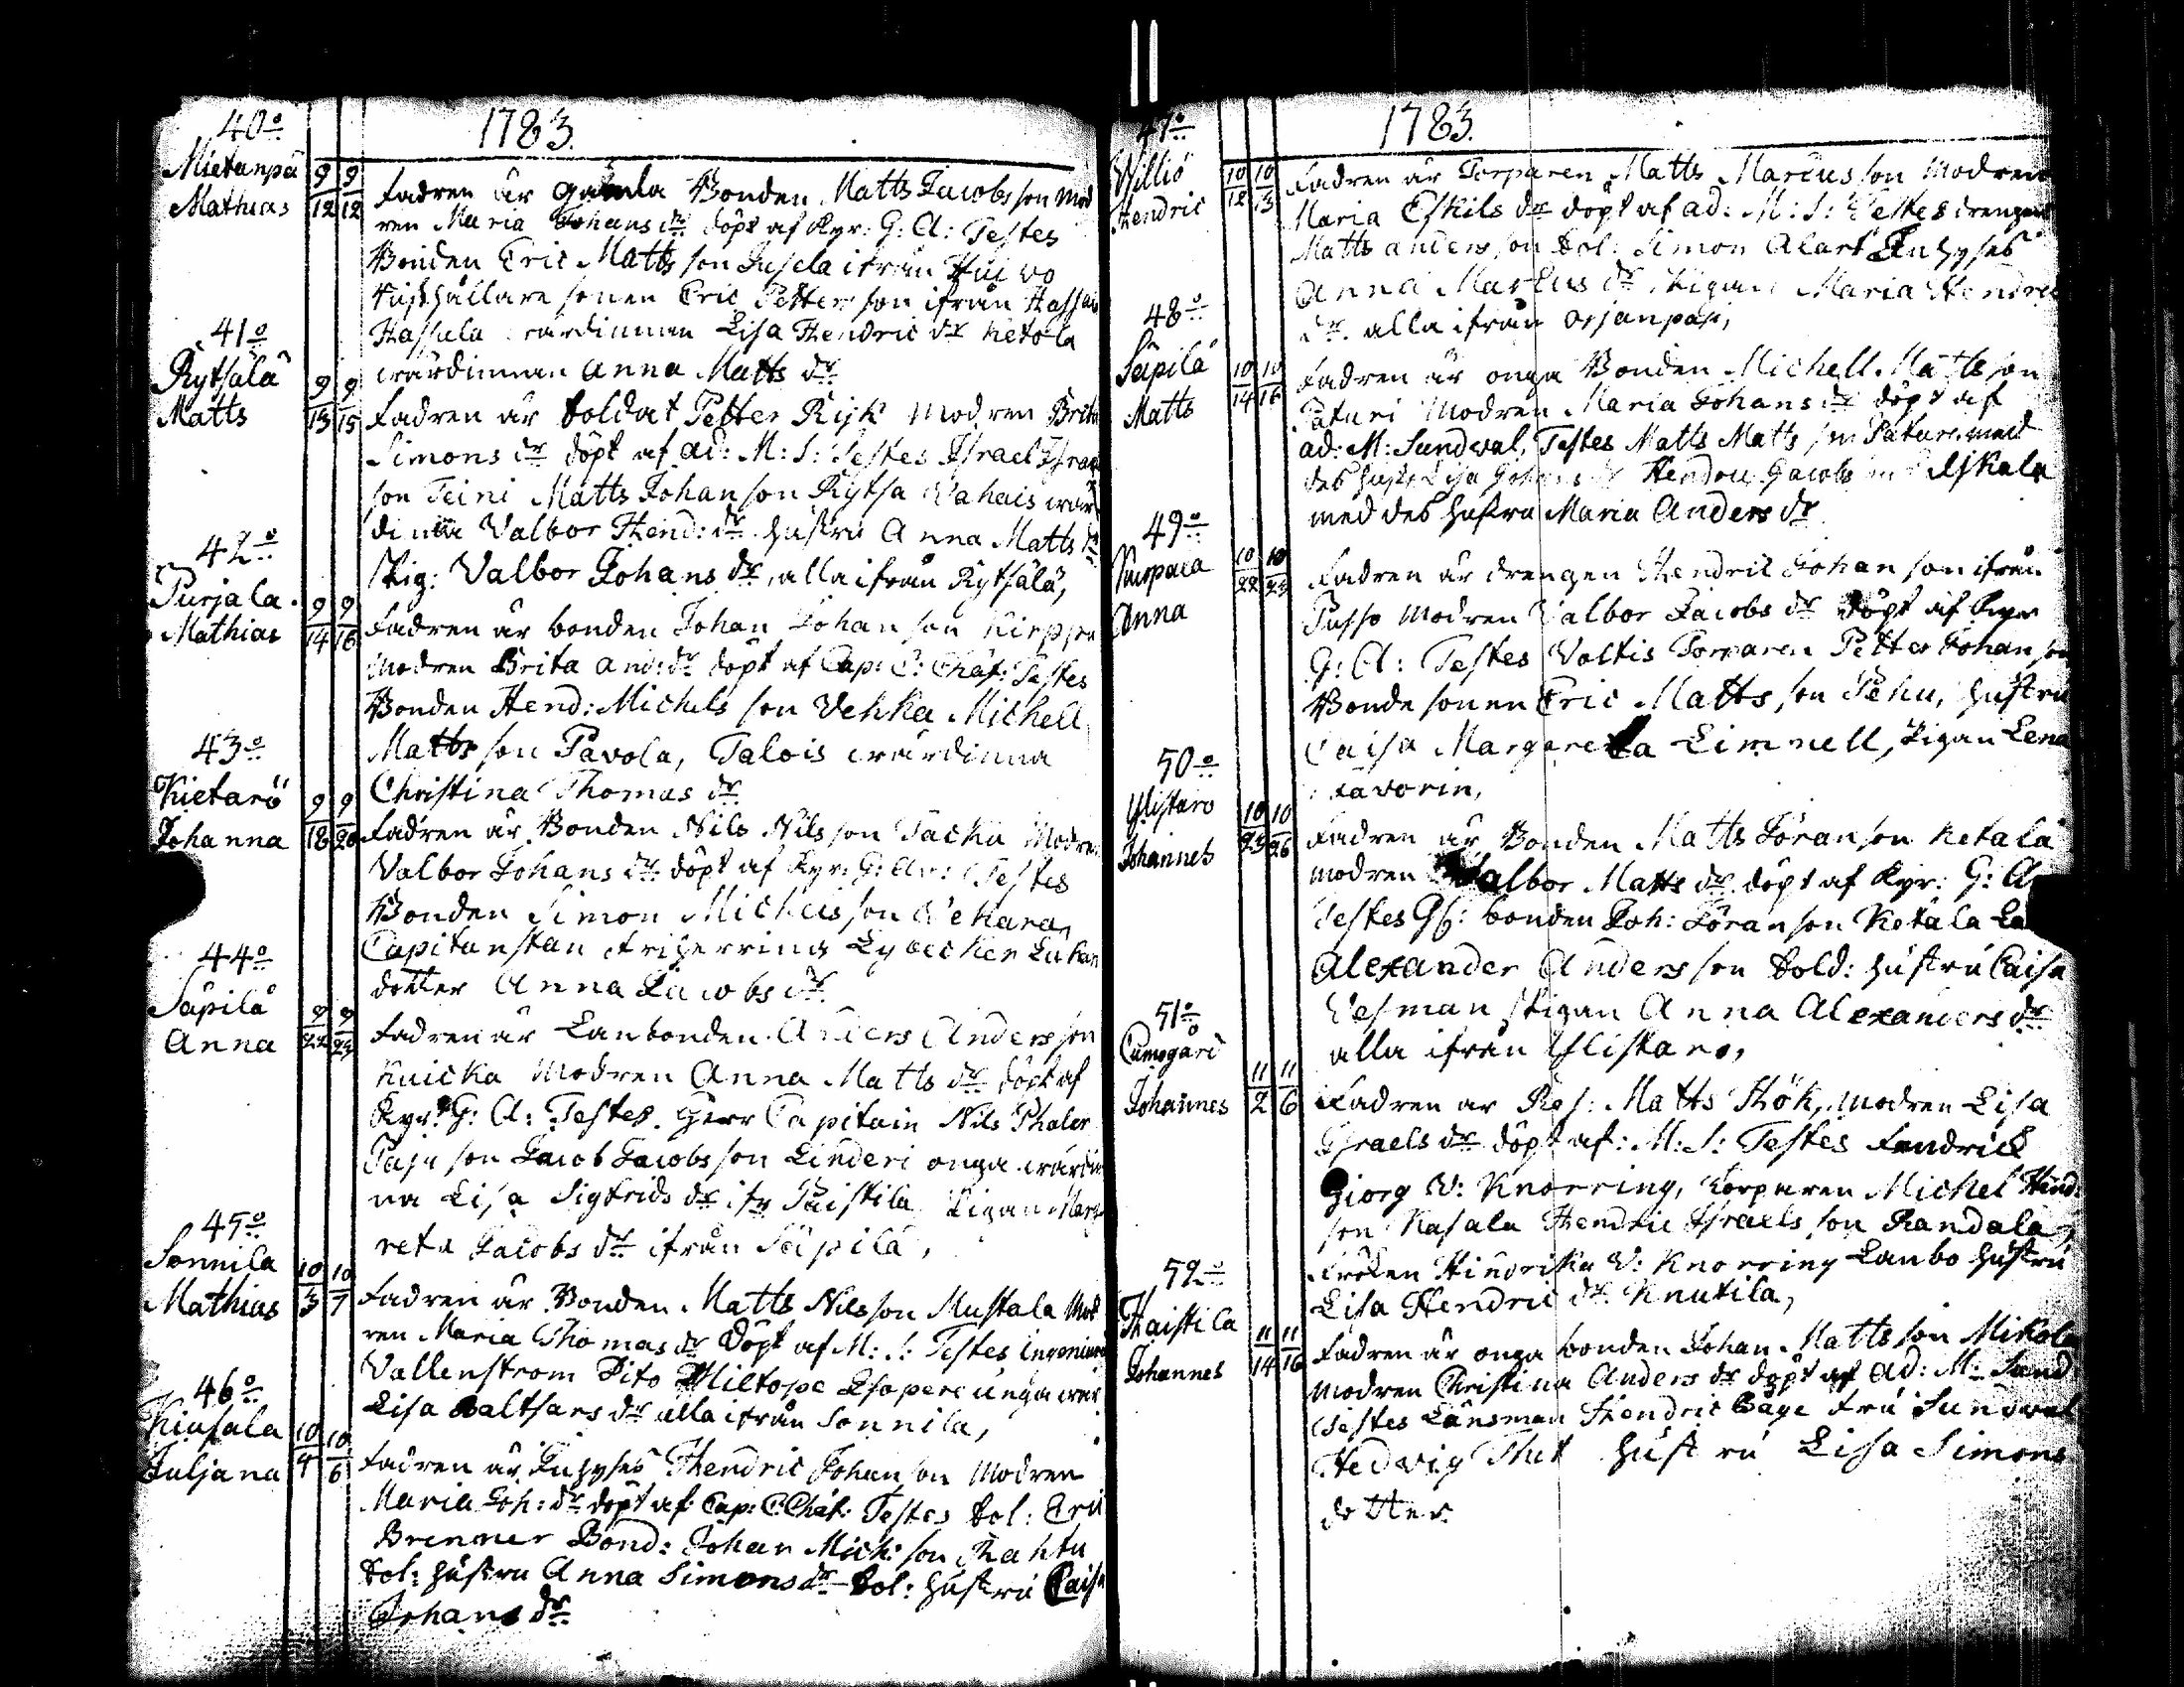 1783.
40o
Mietanpä
Mathias
9/12 9/12
Fadren är gamla Bonden Matts Jacobsson Mod
ren Maria Johans dr döpt af Kyr: G: A: Testes
Bonden Eric Mattsson Jusela ifrån
hållare sonen Eric Pettersson ifrån
Hassala värdinnan Lisa Hendric dr Ketola
wärdinnan Anna Matts dr
41o
Rytsälä
Matts
9/13 9/15
Fadren är Soldat Petter Rijk Modren Brita
Simons dr döpt af ad: M: S: Testes Israel Israe
son Teini Matts Johansson Rytsa Wahais wär
dinna Valbor Hend: dr hustru Anna Matts dr
Pig: Valbor Johans dr, alla ifrån Rytsälä,
42o
Purjala.
Mathias
9/14 9/16
Fadren är bonden Johan Johansson Kirppu
Modren Brita And: dr döpt af Cap: C: Chäf: Testes
Bonden Hend: Michels son Vehka Michell
Matts son Pavola, Talois wärdinna
Christina Thomas dr
43o
Kietarö
Johanna
9/18 9/20
Fadren är Bonden Nils Nilsson Tacku Modren
Valbor Johans dr döpt af Kyr: G: A: Testes
Bonden Simon Michelsson
Capitanskan Friherrina Lybecker
dotter Anna Jacobs dr
44o
Säpilä
Anna
9/22 9/23
Fadren är Lanbonden Anders Andersson
Knicka Modren Anna Matts dr döpt af
Kyr: G: A: Testes Herr Capitain Nils Phaler
Paju son Jacob Jacobsson Linderi onga wärdin
na Lisa Sigfrids dr ifr Paistila Pigan Marga
reta Jacobs dr ifrån Säpilä,
45o
Sonnila
Mathias
10/3 10/7
Fadren är Bonden Matts Nilsson Mustala Mod
ren Maria Thomas dr döpt af M: S: Testes Ingenieur
Vallenstrom Dito Miltope unga wär
Lisa Baltsars dr alla ifrån Sonnila,
46o
Kiusala
Juljana
10/4 10/6
Fadren är Inhyses Hendric Johansson Modren
Maria Joh: dr döpt af Cap: C Chäf: Testes Sol: Eric
Brenner Bond: Johan Mich: son Rahtu
Sol: hustru Anna Simons dr Sol: hustru Caisa
Johans dr
1783.
47o
Williö
Hendric
10/12 10/13
Fadren är Torparen Matts Marcusson Modren
Maria Eskils dr döpt af ad: M: S: Testes drengen
Matts andersson Sol: Simon Alart Inhyses
Anna Markus dr Pigan Maria Hendric
dr alla ifrån Orjanpää,
48o
Säpilä
Matts
10/14 10/16
Fadren är onga Bonden Michell Mattsson
Paturi Modren Maria Johans dr döpt af
ad: M: Sundwal, Testes Matts Matts son Paturi med
des hustr Lisa Johans dr Hendric Jacobs son
med des hustru Maria Anders dr
49o
Anna
10/22 10/23
Fadren är drengen Hendric Johansson ifrån
Pusso Modren Valbor Jacobs dr döpt af Kyr
G: A: Testes Voltis Torparen Petter Johansson
Bonde sonen Eric Matts son Pehu, hustru
Caisa Margareta Limnell, Pigan Lena
Favorin,
50o
Ylistaro
Johannes
10/25 10/26
Fadren är Bonden Matts Jöransson Ketala
modren Walbor Matts dr döpt af Kyr: G: A
Testes bonden Joh: Jöransson Ketala
Alexander Andersson Sold: hustru Caisa
Wesman Pigan Anna Alexanders dr
alla ifrån Ylistaro,
51o
Cumogård
Johannes
11/2 11/6
Fadren är Res: Matts Hök, Modren Lisa
Israels dr döpt af: M: S: Testes Fendrick
Giorg V: Knorring, Torparen Michel Hind:
son Kasala Hendric Israels son Randala,
Fröken Hindrika V: Knorring Lanbo hustru
Lisa Hendric dr Knutila,
52o
Haistila
Johannes
11/14 11/16
Fadren är onga bonden Johan Mattsson Mikola
Modren Christina Anders dr döpt af ad: M: Sund
Testes Länsman Hendric Båge Fru Sundwal
Hedvig Thet hustru Lisa Simons
dotter